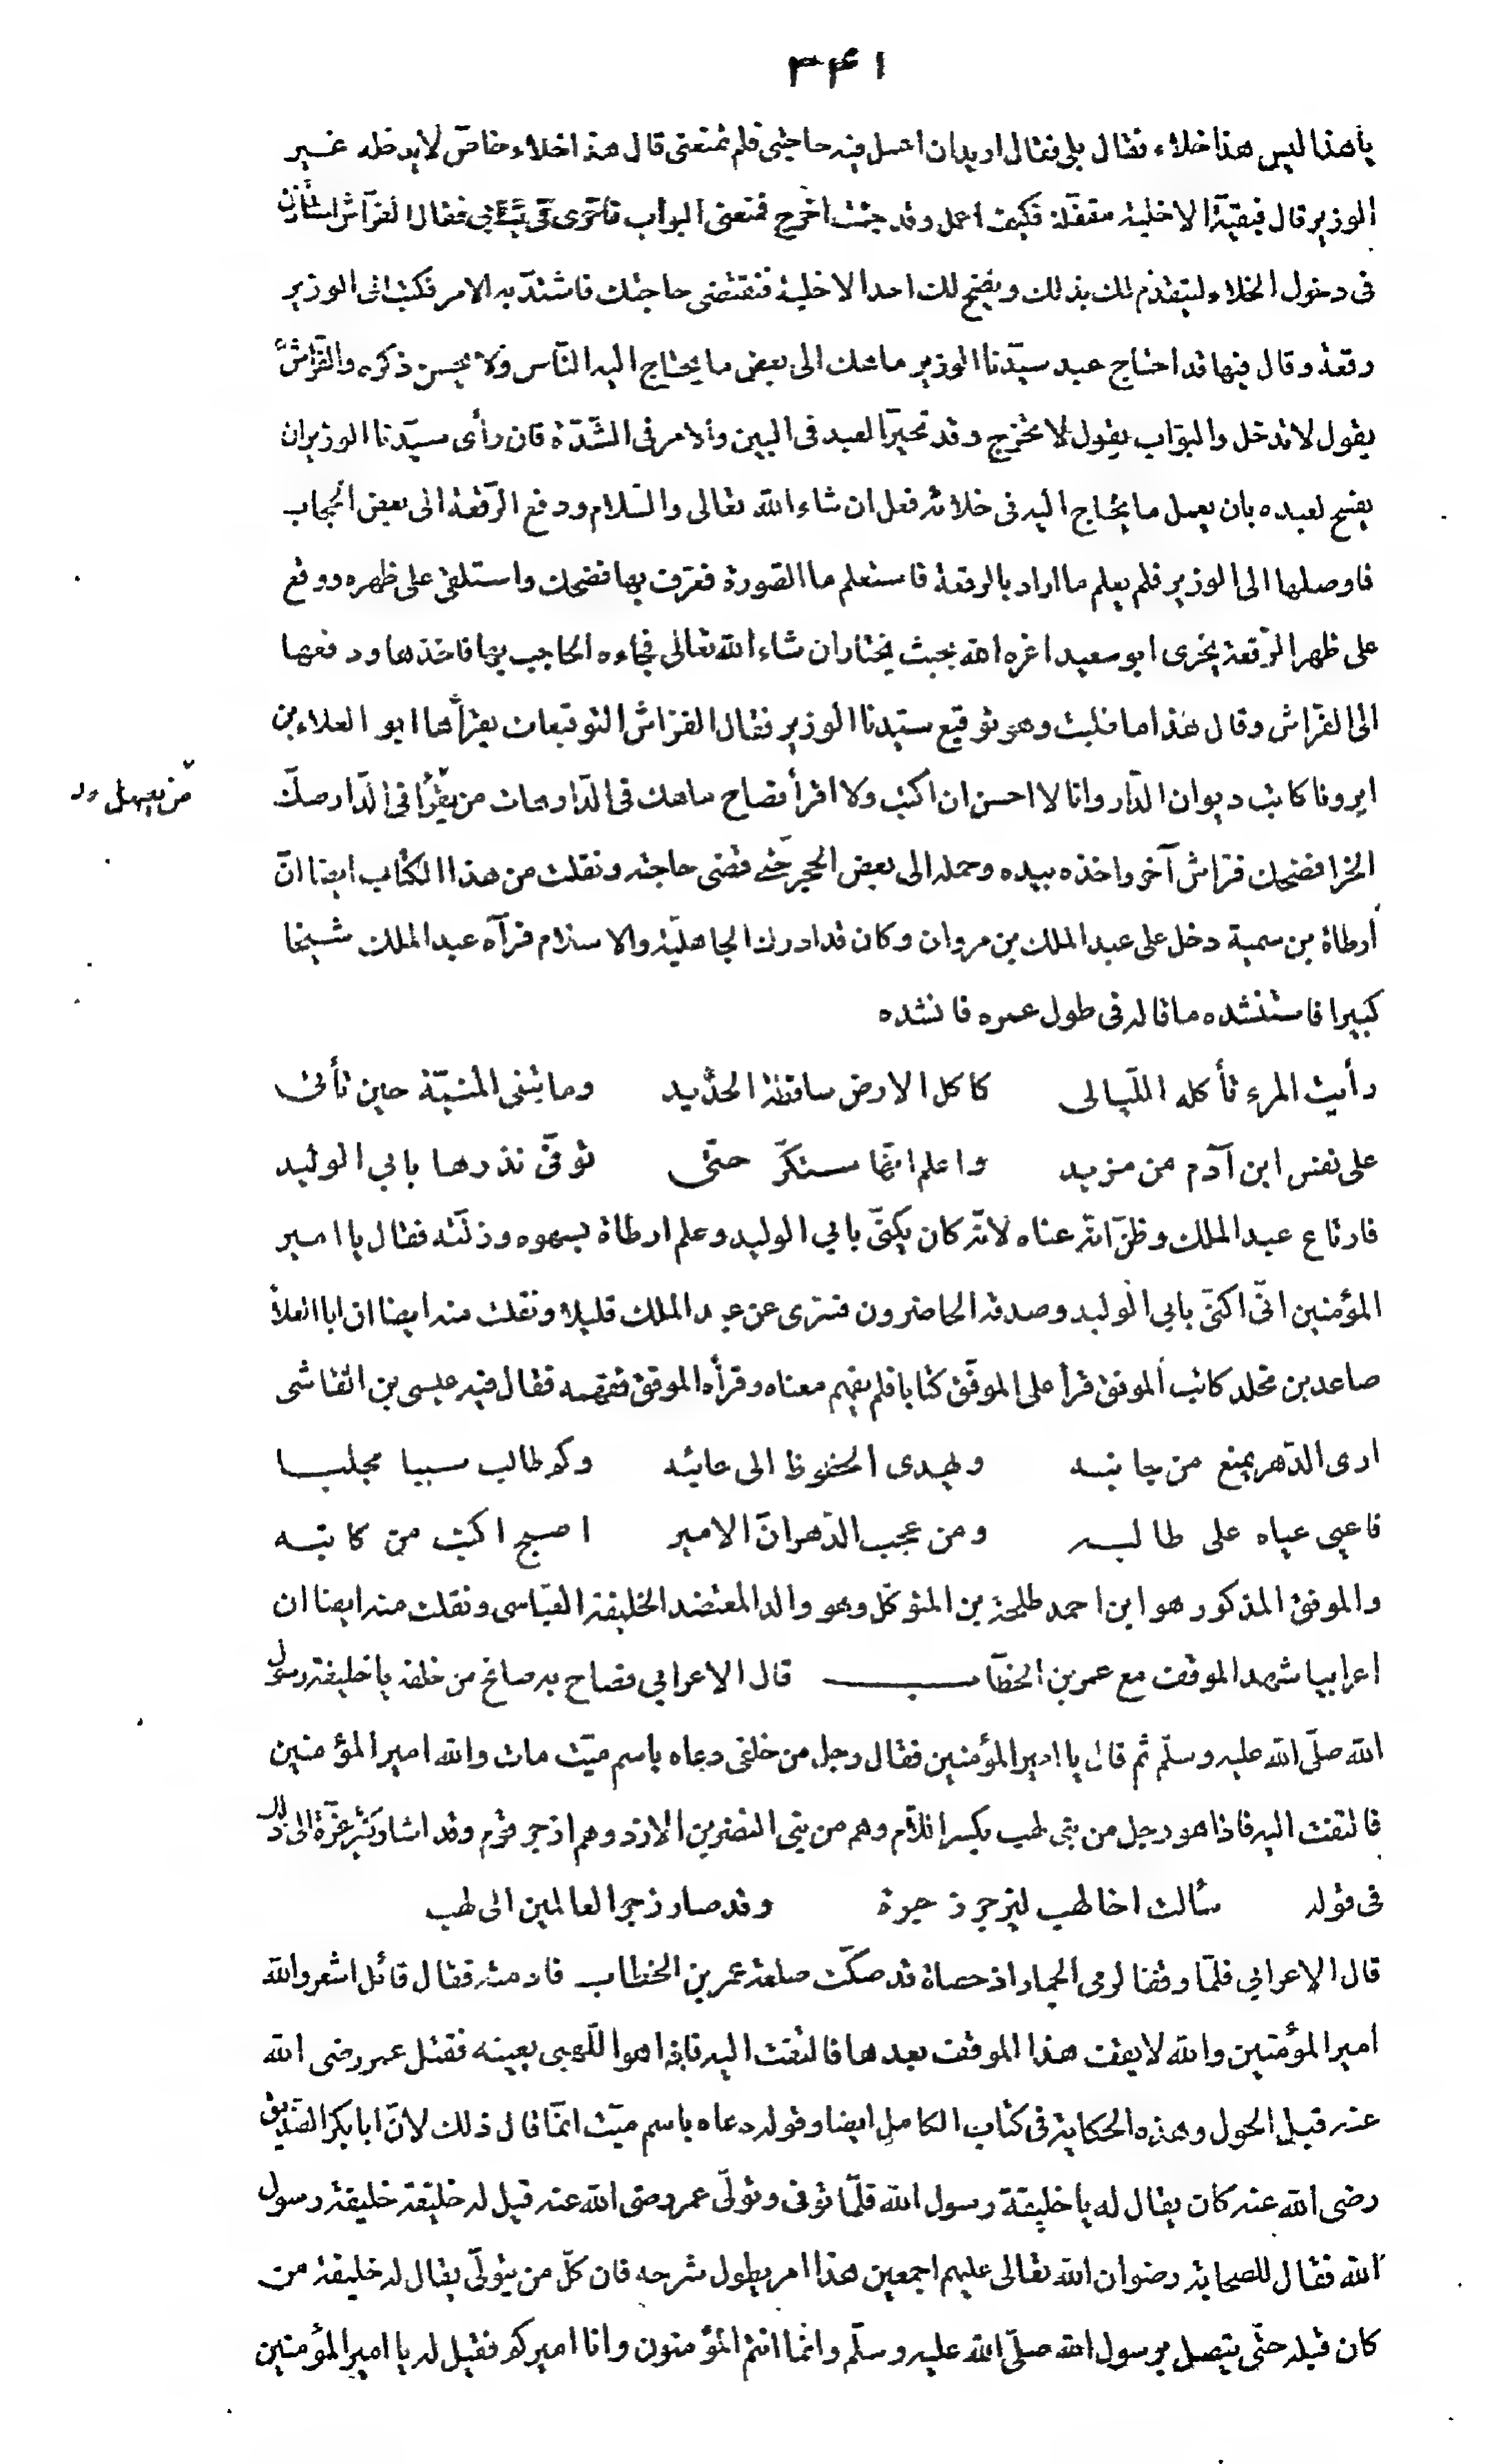 ٣۴١
ياهذا اليس هذا خلاء فقال بلى فقال اريد ان اعمل فيه حاجتى فلم تمنعنى قال هذا خلاء خاص لا يدخله غير
الوزير قال فبقيّة الاخلية مقفلة فكيف اعمل وقد جئت اخرج فمنعنى البواب فقال الفراش استأذن
فى دخول الخلاء ليتقدّم لك بذلك ويفتح لك احد الاخلية فتقتضى حاجتك فاشتدّ به الامر فكتب الى الوزير
رقعة وقال فيها قد احتاج عبد سيّدنا الوزير ماهك الى بعض ما يحتاج اليه النّاس ولا يحسن ذكره والفرّاش
يقول لا تدخل والبوّاب يقول لا تخرج وقد تحيّر العبد فى البين والامر فى الشّدّة فان رأى سيّدنا الوزير ان
يفسح لعبده بان يعمل ما يحتاج اليه فى خلائه فعل ان شاء الله تعالى والسّلام ودفع الرّقعة الى بعض الحجاب
فاوصلها الى الوزير فلم يعلم ما اراد بالرقعة فاستعلم ما الصّورة فعرف بها فضحك واستلقى على ظهره ووقع
على ظهر الرّقعة يخرى ابو سعيد اعزه الله بحيث يختار ان شاء الله تعالى فجاءه الحاجب بها فاخذها ودفعها
الى الفرّاش وقال هذا ما طلبت وهو توقيع سيّدنا الوزير فقال الفرّاش التوقيعات يقرأها ابو العلاء بن
ابرونا كاتب ديوان الدّار وانا لا احسن ان اكتب ولا اقرأ فصاح ماهك فى الدّار هات من يقرأ فى الدّار صكّ
الخرا فضحك فرّاش آخر واخذه بيده وحمله الى بعض الحجر حتى قضى حاجته ونقلت من هذا الكتاب ايضا انّ
أرطاة بن سمية دخل على عبد الملك بن مروان وكان قد ادرك الجاهليّة والاسلام فرآه عبد الملك شيخا
كبيرا فاستنشده ما قاله فى طول عمره فانشده
رأيت المرء تأكله اللّيالى كاكل الارض ساقطة الحديد وما تبغى المنيّة حين تأتى
على نفس ابن آدم من مزيد واعلم انّها ستكرّ حتّى توفّى نذرها بابى الوليد
فارتاع عبد الملك وظنّ انّه عناه لانّه كان يكنّى بابى الوليد وعلم ارطاة بسهوه وزلّته فقال يا امير
المؤمنين انّى اكنّى بابى الوليد وصدقه الحاضرون فسرى عن عبد الملك قليلا ونقلت منه ايضا ان ابا العلاء
صاعد بن مخلد كاتب الموفق قرأ على الموفّق كتابا فلم يفهم معناه وقرأه الموفق ففهمه فقال فيه عيسى بن القاشى
ارى الدّهر يمنع من جانبه ويهدى الحظوظ الى عائبه وكم طالب سببا مجلبا
فاعيى عياه على طالبه ومن عجب الدّهر انّ الامير اصبح اكتب من كاتبه
والموفق المذكور هو ابن احمد طلحة بن المتوكّل وهو والد المعتضد الخليفة العبّاسى ونقلت منه ايضا ان
اعرابيا شهد الموقف مع عمر بن الخطّاب قال الاعرابى فصاح به صائح من خلفه يا خليفة رسول
الله صلّى الله عليه وسلّم ثم قال يا امير المؤمنين فقال رجل من خلفى دعاه باسم ميّت مات والله امير المؤمنين
فالتفت اليه فاذا هو رجل من بنى لهب بكسر اللّام وهم من بنى النضر بن الازد وهم ازجر قوم وقد اشار كثيّر عزّة الى ذلك
فى قوله سألت اخا لهب ليزجر زجرة وقد صار زجر العالمين الى لهب
قال الاعرابى فلمّا وقفنا لرمى الجمار اذ حصاة قد صكّت صلعة عمر بن الخطاب فادمته فقال قائل اشعر والله
امير المؤمنين والله لا يقف هذا الموقف بعدها فالتفت اليه فاذا هو اللّهبى بعينه فقتل عمر رضى الله
عنه قبل الحول وهذه الحكاية فى كتاب الكامل ايضا وقوله دعاه باسم ميّت انّما قال ذلك لانّ ابا بكر الصّدّيق
رضى الله عنه كان يقال له يا خليفة رسول الله فلمّا توفى وتولّى عمر رضى الله عنه قيل له خليفة خليفة رسول
الله فقال للصحابة رضوان الله تعالى عليهم اجمعين هذا امر يطول شرحه فان كلّ من يتولّى يقال له خليفة من
كان قبله حتّى يتصل برسول الله صلّى الله عليه وسلّم وانّما انتم المؤمنون وانا اميركم فقيل له يا امير المؤمنين